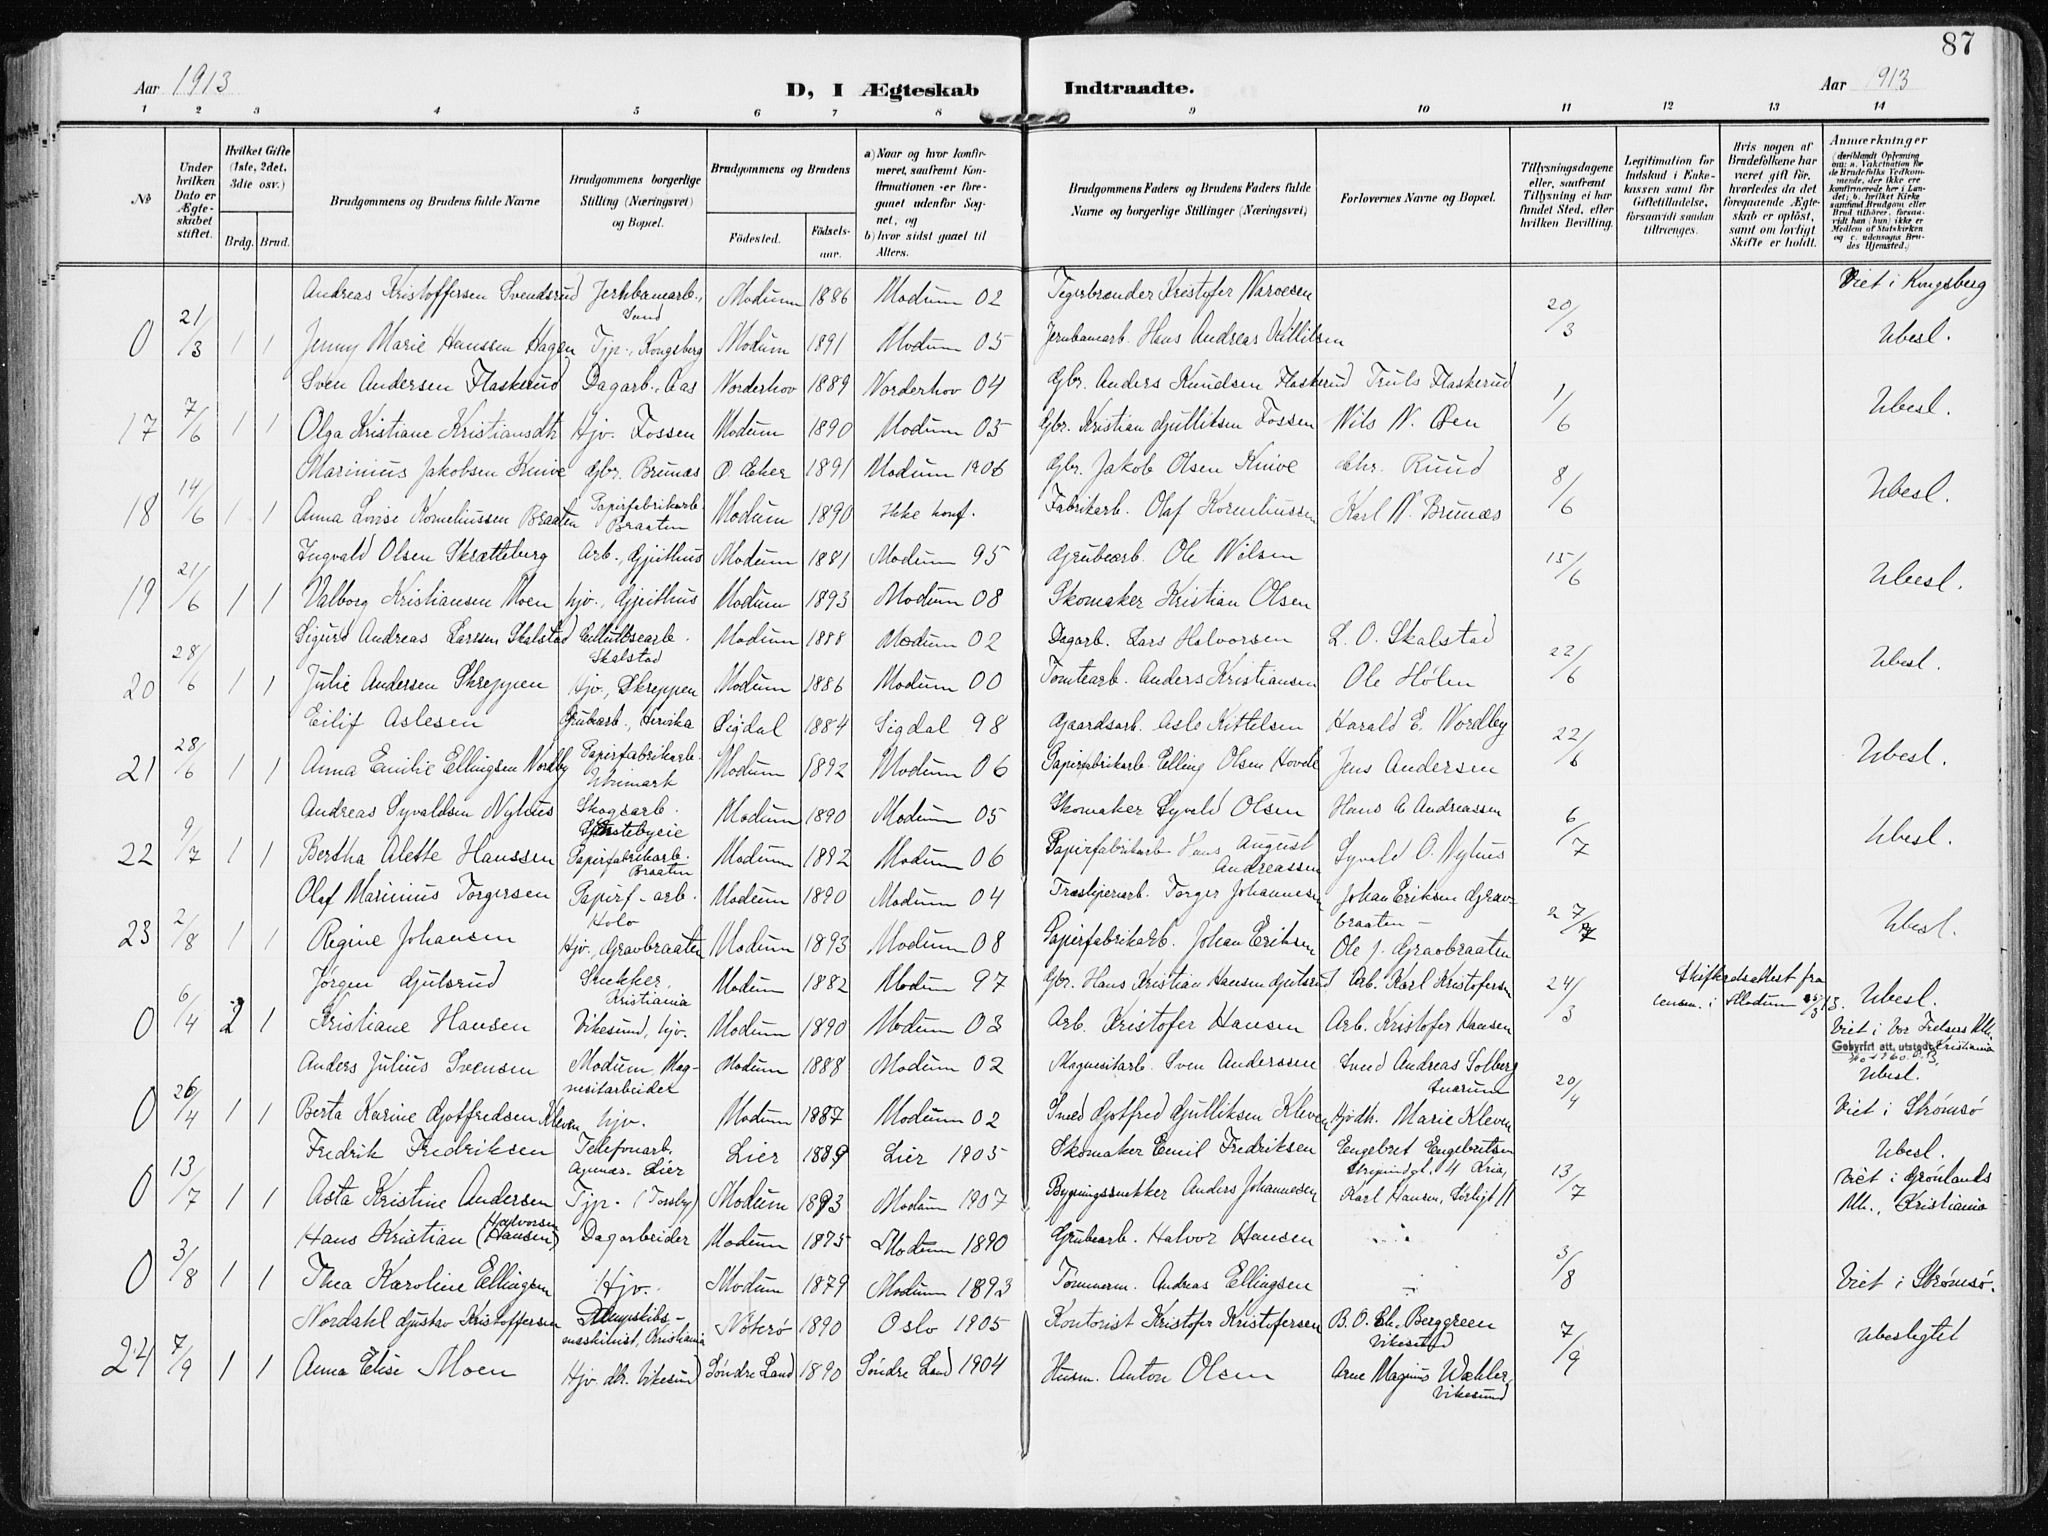 87
Aar 1913
D, I Ægteskab Indtraadte.
Aar 1913
1 2 3 4 5 6 7 8 9 10 11 12 13 14
No
Under hvilken Dato er Ægteskabet stiftet.
Hvilket Gifte (1ste, 2det, 3die osv.)
Brdg. Brud.
Brudgommens og Brudens fulde Navne
Brudgommens borgerlige Stilling (Næringsvei) og Bopæl.
Brudgommens og Brudens
Fødested.
Fødselsaar.
a) Naar og hvor konfirmeret, saafremt Konfirmationen er foregaaet udenfor Sognet, og
b) hvor sidst gaaet til Alters.
Brudgommens Faders og Brudens Faders fulde Navne og borgerlige Stillinger (Næringsvei)
Forlovernes Navne og Bopæl.
Tillysningsdagene eller, saafremt Tillysning ei har fundet Sted, efter hvilken Bevilling.
Legitimation for Indskud i Enkekassen samt for Giftetilladelse, forsaavidt saadan tiltrænges.
Hvis nogen af Brudefolkene har været gift før, hvorledes da det foregaaende Ægteskab er opløst, samt om lovligt Skifte er holdt.
Anmærkninger
(deriblandt Oplysning om: a. Vakcination for de Brudefolks Vedkommende, der ikke ere konfirmerede her i Landet; b. hvilket Kirkesamfund Brudgom eller Brud tilhører, forsaavidt han (hun) ikke er Medlem af Statskirken og c. udensogns Brudes Hjemsted.)
Andreas Kristoffersen Svendsrud Jernbanearb., Sund Modum 1886 Modum 02 Kristofer Narvesen Viet i Kongsberg
0 21/3 1 1 Jenny Marie Hanssen Hagen Tjp., Kongsberg Modum 1891 Modum 05 Jernbanearb. Hans Andreas Killilsen 20/3 Ubesl.
Sven Andersen Flaskerud Dagarb., Aas Norderhov 1889 Norderhov 04 Gbr. Anders Knudsen Flaskerud Truls Flaskerud
17 7/6 1 1 Olga Kristiane Kristiansdtr Hjv. Fossen Modum 1890 Modum 05 Gbr. Kristian Gulliksen Fossen Nils N. Øen 1/6 Ubesl.
Marinius Jakobsen Knive Gbr. Brunæs Ø. Eker 1891 Modum 1906 Gbr. Jakob Olsen Knive Chr. Ruud
18 14/6 1 1 Anna Lovise Korneliussen Braaten Papirfabrikarb. Braaten Modum 1890 Ikke konf. Fabrikarb. Olaf Korneliussen Karl N. Brunæs 8/6 Ubesl.
Ingvald Olsen Skrætteberg Arb., Gjeithus Modum 1881 Modum 95 Grubearb. Ole Nilsen
19 21/6 1 1 Valborg Kristiansen Moen hjv., Gjeithus Modum 1893 Modum 08 Skomaker Kristian Olsen 15/6 Ubesl.
Sigurd Andreas Larssen Skalstad Cellulosearb. Skalstad Modum 1888 Modum 02 Dagarb. Lars Halvorsen L. O. Skalstad
20 28/6 1 1 Julie Andersen Skreppen Hjv., Skreppen Modum 1886 Modum 00 Tomtearb. Anders Kristiansen Ole Hølen 22/6 Ubesl.
Eilif Aslesen Grubearb., Sigdal 1884 Sigdal 98 Gaardsarb. Asle Kittelsen Harald E. Nordby
21 28/6 1 1 Anna Emilie Ellingsen Nordby Papirfabrikarb. Modum 1892 Modum 06 Papirfabrikarb. Elling Olsen Hovde Jens Andersen 22/6 Ubesl.
Andreas Syvaldsen Nyhus Skogsarb. Modum 1890 Modum 05 Skomaker Syvald Olsen Hans A Andreassen
22 9/7 1 1 Bertha Alette Hanssen Papirfabrikarb. Braaten Modum 1892 Modum 06 Papirfabrikarb. Hans August Andreassen Syvald O. Nyhus 6/7 Ubesl.
Olaf Marinius Torgersen Papirf-arb. Holo Modum 1890 Modum 04 Træsliperiarb. Torger Johannesen Johan Eriksen Gravbraaten
23 2/8 1 1 Regine Johansen Hjv., Gravbraaten Modum 1893 Modum 08 Papirfabrikarb. Johan Eriksen Ole J. Gravbraaten 27/7 Ubesl.
Jørgen Gjulsrud Snekker, Kristiania Modum 1882 Modum 97 Gbr. Hans Kristian Hansen Gjulsrud Arb. Karl Kristofersen Skifteradsattest fra
0 6/4 2 1 Kristiane Hansen Vikesund, hjv. Modum 1890 Modum 03 Arb. Kristofer Hansen Arb. Kristofer Hansen 24/3 lensm. i Modum 13. Ubesl.
Viet i Vor Frelsers Kk. Kristiania
Gebyrfri att. utstedt
Anders Julius Svensen Modum, Magnesitarbeider Modum 1888 Modum 02 Magnesitarb. Sven Anderssen Svend Andreas Solberg Snarum Ubesl.
0 26/4 1 1 Berta Karine Gotfredsen Kleven hjv. Modum 1887 Modum 02 Smed Gotfred Gulliksen Kleven Hjdh. Marie Kleven 20/4 Viet i Strømsø
Fredrik Fredriksen Telefonarb. Lier Lier 1889 Lier 1905 Skomaker Emil Fredriksen Engebret Engebritsen 4 Kria, Ubesl.
0 13/7 1 1 Asta Kristine Andersen Tjp. (Torsby) Modum 1893 Modum 1907 Bygningssnekker Anders Johannesen Karl Hansen, 11 13/7 Viet i Grønlands Kk., Kristiania
Hans Kristian (Halvorsen Hansen) Dagarbeider Modum 1875 Modum 1890 Grubearb. Halvor Hansen
0 3/8 1 1 Thea Karoline Ellingsen Hjv. Modum 1879 Modum 1893 Tømmerm. Andreas Ellingsen 3/8 Viet i Strømsø.
Nordahl Gustav Kristoffersen Dampskibsmaskinist, Kristiania Nøterø 1890 Oslo 1905 Kontorist Kristofer Kristofersen B. O. Ch. Berggreen Vikesund
24 7/9 1 1 Anna Elise Moen Hjv. Vikesund Søndre Land 1890 Søndre Land 1904 Husm. Anton Olsen Arne Magnus Wæhler, Vikesund 7/9 Ubeslegtet